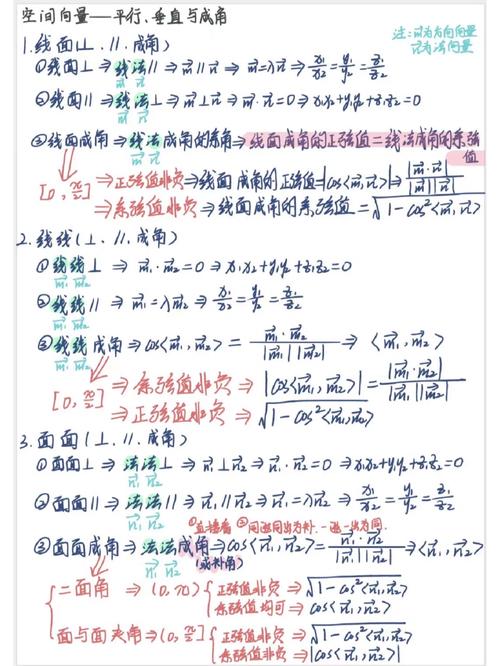 空间向量——平行、垂直与成角
注: m⃗为方向向量
n⃗为法向量
1.线面(⊥.∥.成角)
①线面⊥⇒线法∥⇒m⃗∥n⃗⇒m⃗=λn⃗⇒x₁/x₂=y₁/y₂=z₁/z₂
m⃗ n⃗
②线面∥⇒线法⊥⇒m⃗⊥n⃗⇒m⃗·n⃗=0⇒x₁x₂+y₁y₂+z₁z₂=0
m⃗ n⃗
③线面成角⇒线法成角的余角⇒线面成角的正弦值=线法成角的余弦值
m⃗ n⃗
[0,π/2]⇒正弦值非负⇒线面成角的正弦值=|cos<m⃗,n⃗>|⇒|m⃗·n⃗|/|m⃗||n⃗|
⇒余弦值非负⇒线面成角的余弦值=√1-cos²<m⃗,n⃗>
2.线线(⊥.∥.成角)
①线线⊥⇒m⃗₁·m⃗₂=0⇒x₁x₂+y₁y₂+z₁z₂=0
m⃗₁ m⃗₂
②线线∥⇒m⃗₁=λm⃗₂⇒x₁/x₂=y₁/y₂=z₁/z₂
m⃗₁ m⃗₂
③线线成角⇒cos<m⃗₁,m⃗₂>=m⃗₁·m⃗₂/|m⃗₁||m⃗₂|⇒<m⃗₁,m⃗₂>
m⃗₁ m⃗₂
[0,π/2]⇒余弦值非负⇒|cos<m⃗₁,m⃗₂>|=|m⃗₁·m⃗₂|/|m⃗₁||m⃗₂|
⇒正弦值非负⇒√1-cos²<m⃗₁,m⃗₂>
3.面面(⊥.∥.成角)
①面面⊥⇒法法⊥⇒n⃗₁⊥n⃗₂⇒n⃗₁·n⃗₂=0⇒x₁x₂+y₁y₂+z₁z₂=0
n⃗₁ n⃗₂
②面面∥⇒法法∥⇒n⃗₁∥n⃗₂⇒n⃗₁=λn⃗₂⇒x₁/x₂=y₁/y₂=z₁/z₂
n⃗₁ n⃗₂
①直接看 ②同进同出为补.一进一出为同.
③面面成角⇒法法成角⇒cos<n⃗₁,n⃗₂>=n⃗₁·n⃗₂/|n⃗₁||n⃗₂|⇒<n⃗₁,n⃗₂>
n⃗₁ n⃗₂ (或补角)
二面角⇒(0,π){正弦值非负⇒√1-cos²<n⃗₁,n⃗₂>
余弦值均可⇒cos<n⃗₁,n⃗₂>
面与面夹角⇒(0,π/2]{正弦值非负⇒√1-cos²<n⃗₁,n⃗₂>
余弦值非负⇒|cos<n⃗₁,n⃗₂>|